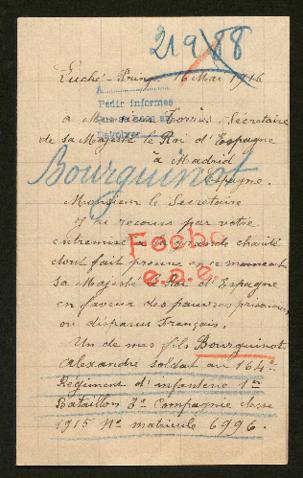 219/88
Luché-Pring 16 Mai 1916
A
Pedir informes
Que se
Devolver
a M. Torrès Secretaire
de Sa Majesté le Roi d'Espagne
à Madrid
Espagne.
Bourguinot
Monsieur le Secretaire
J'ai recours par votre
entremise a la grande charité
dont fait preuve en ce moment
Sa Majesté le Roi d'Espagne
en faveur des pauvres prisonniers
ou disparus Français.
Fecho
e.a.e.
Un de mes fils Bourguinot
Alexandre soldat au 164e
Régiment d'infanterie 1er
Bataillon 3e Compagnie classe
1915 No matricule 6996.